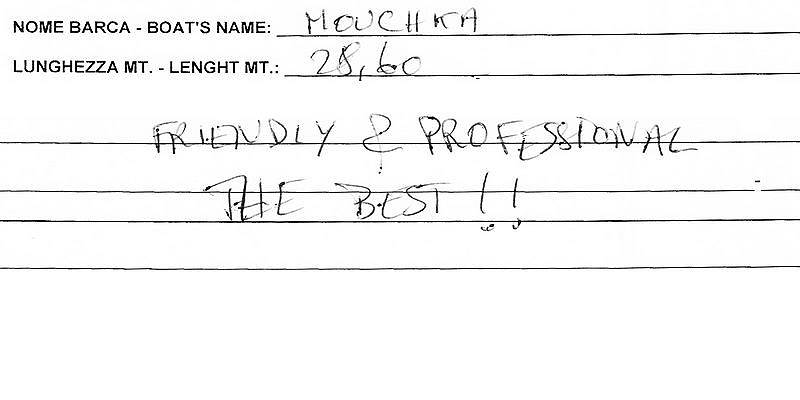 NOME BARCA - BOAT'S NAME: MOUCHKA
LUNGHEZZA MT. - LENGHT MT.: 28,60
FRIENDLY & PROFESSIONAL
THE BEST!!